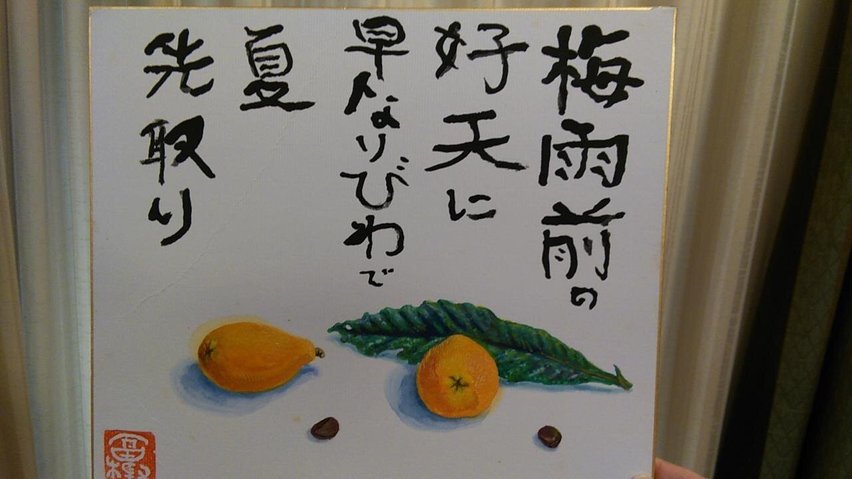 梅雨前の
好天に
早なりびわで
夏
先取り